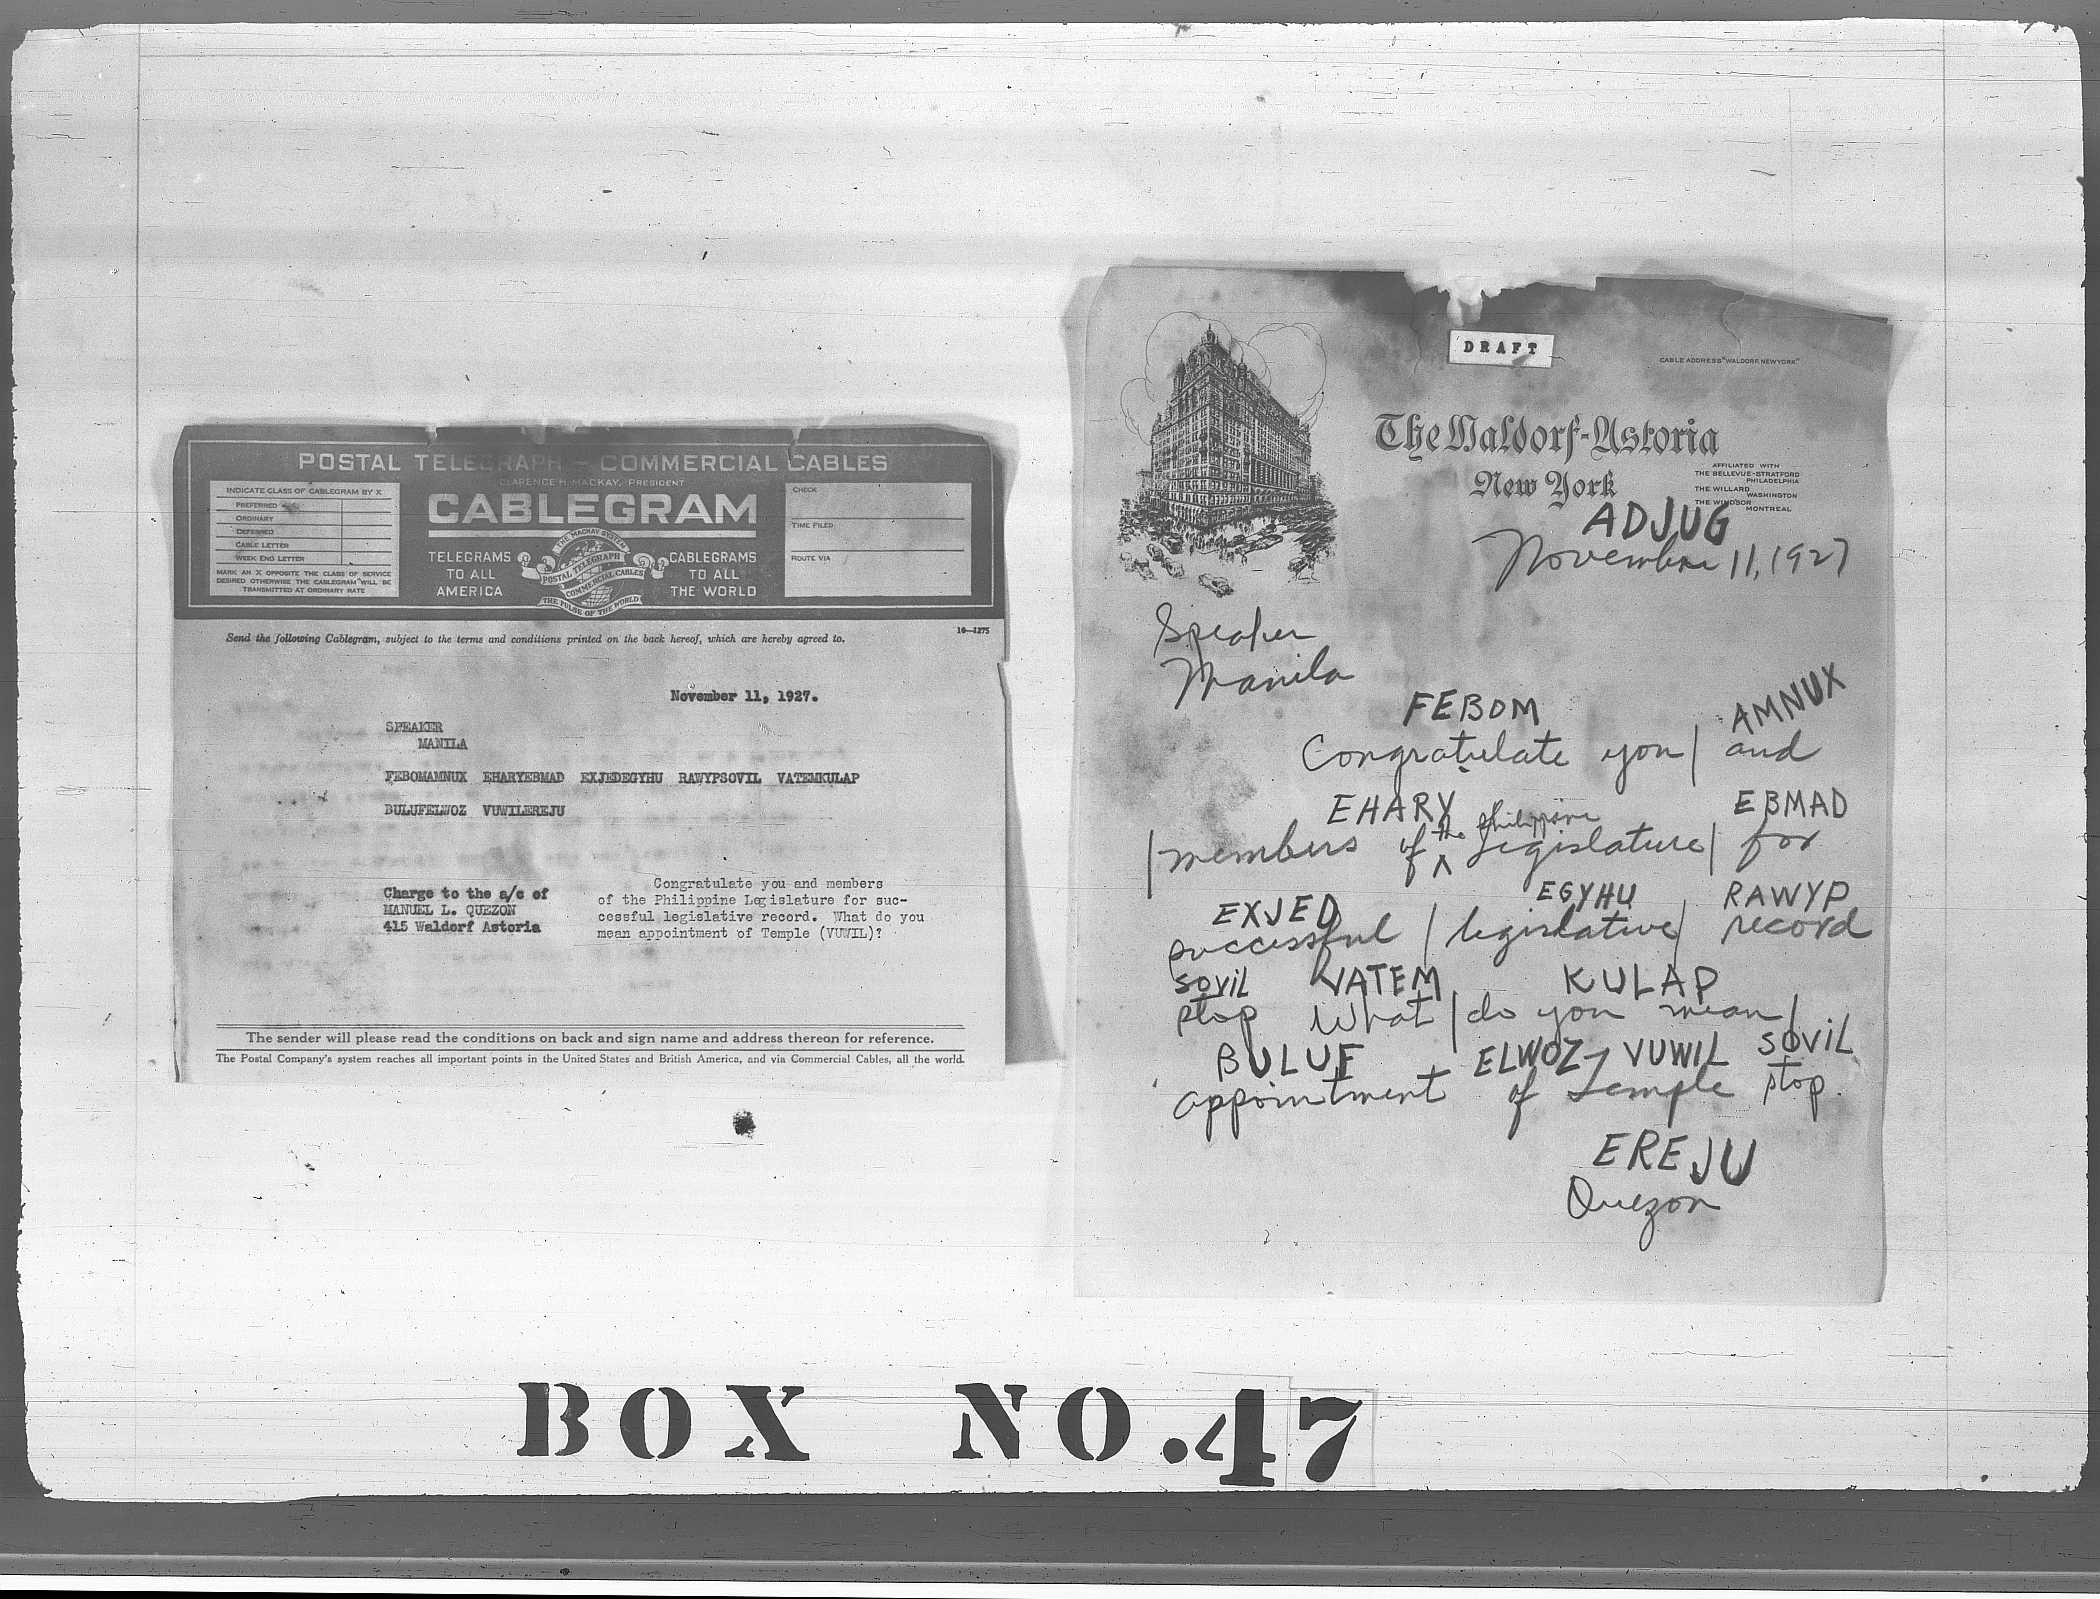 POSTAL TELEGRAPH - COMMERCIAL CABLES
CLARENCE H. MACKAY, PRESIDENT
CABLEGRAM
INDICATE CLASS OF CABLEGRAM BY X
PREFERRED
ORDINARY
DEFERRED
CABLE LETTER
WEEK END LETTER
MARK AN X OPPOSITE THE CLASS OF SERVICE
DESIRED OTHERWISE THE CABLEGRAM WILL BE
TRANSMITTED AT ORDINARY RATE
TELEGRAMS
TO ALL
AMERICA
THE MACKAY SYSTEM
POSTAL TELEGRAPH
COMMERCIAL CABLES
THE PULSE OF THE WORLD
CABLEGRAMS
TO ALL
THE WORLD
CHECK
TIME FILED
ROUTE VIA
16-1275
Send the following Cablegram, subject to the terms and conditions printed on the back hereof, which are hereby agreed to.
November 11, 1927.
SPEAKER
MANILA
FEBOMAMNUX EHARYEBMAD EXJEDEGYHU RAWYPSOVIL VATEMKULAP
BULUFELWOZ VUWILEREJU
Charge to the a/c of
MANUEL L. QUEZON
415 Waldorf Astoria
Congratulate you and members
of the Philippine Legislature for suc-
cessful legislative record. What do you
mean appointment of Temple (VUWIL)?
The sender will please read the conditions on back and sign name and address thereon for reference.
The Postal Company's system reaches all important points in the United States and British America, and via Commercial Cables, all the world.
DRAFT
CABLE ADDRESS "WALDORF, NEWYORK"
The Waldorf-Astoria
New York
AFFILIATED WITH
THE BELLEVUE-STRATFORD
PHILADELPHIA
THE WILLARD
WASHINGTON
THE WINDSOR
MONTREAL
ADJUG
November 11, 1927
Speaker
Manila
FEBOM AMNUX
Congratulate you | and
EHARY EBMAD
the Philippine
| members of ^ Legislature | for
EXJED EGYHU RAWYP
successful | legislative | record
SOVIL VATEM KULAP
stop What | do you mean |
BULUF ELWOZ VUWIL SOVIL
appointment of Temple stop.
EREJU
Quezon
BOX NO. 47